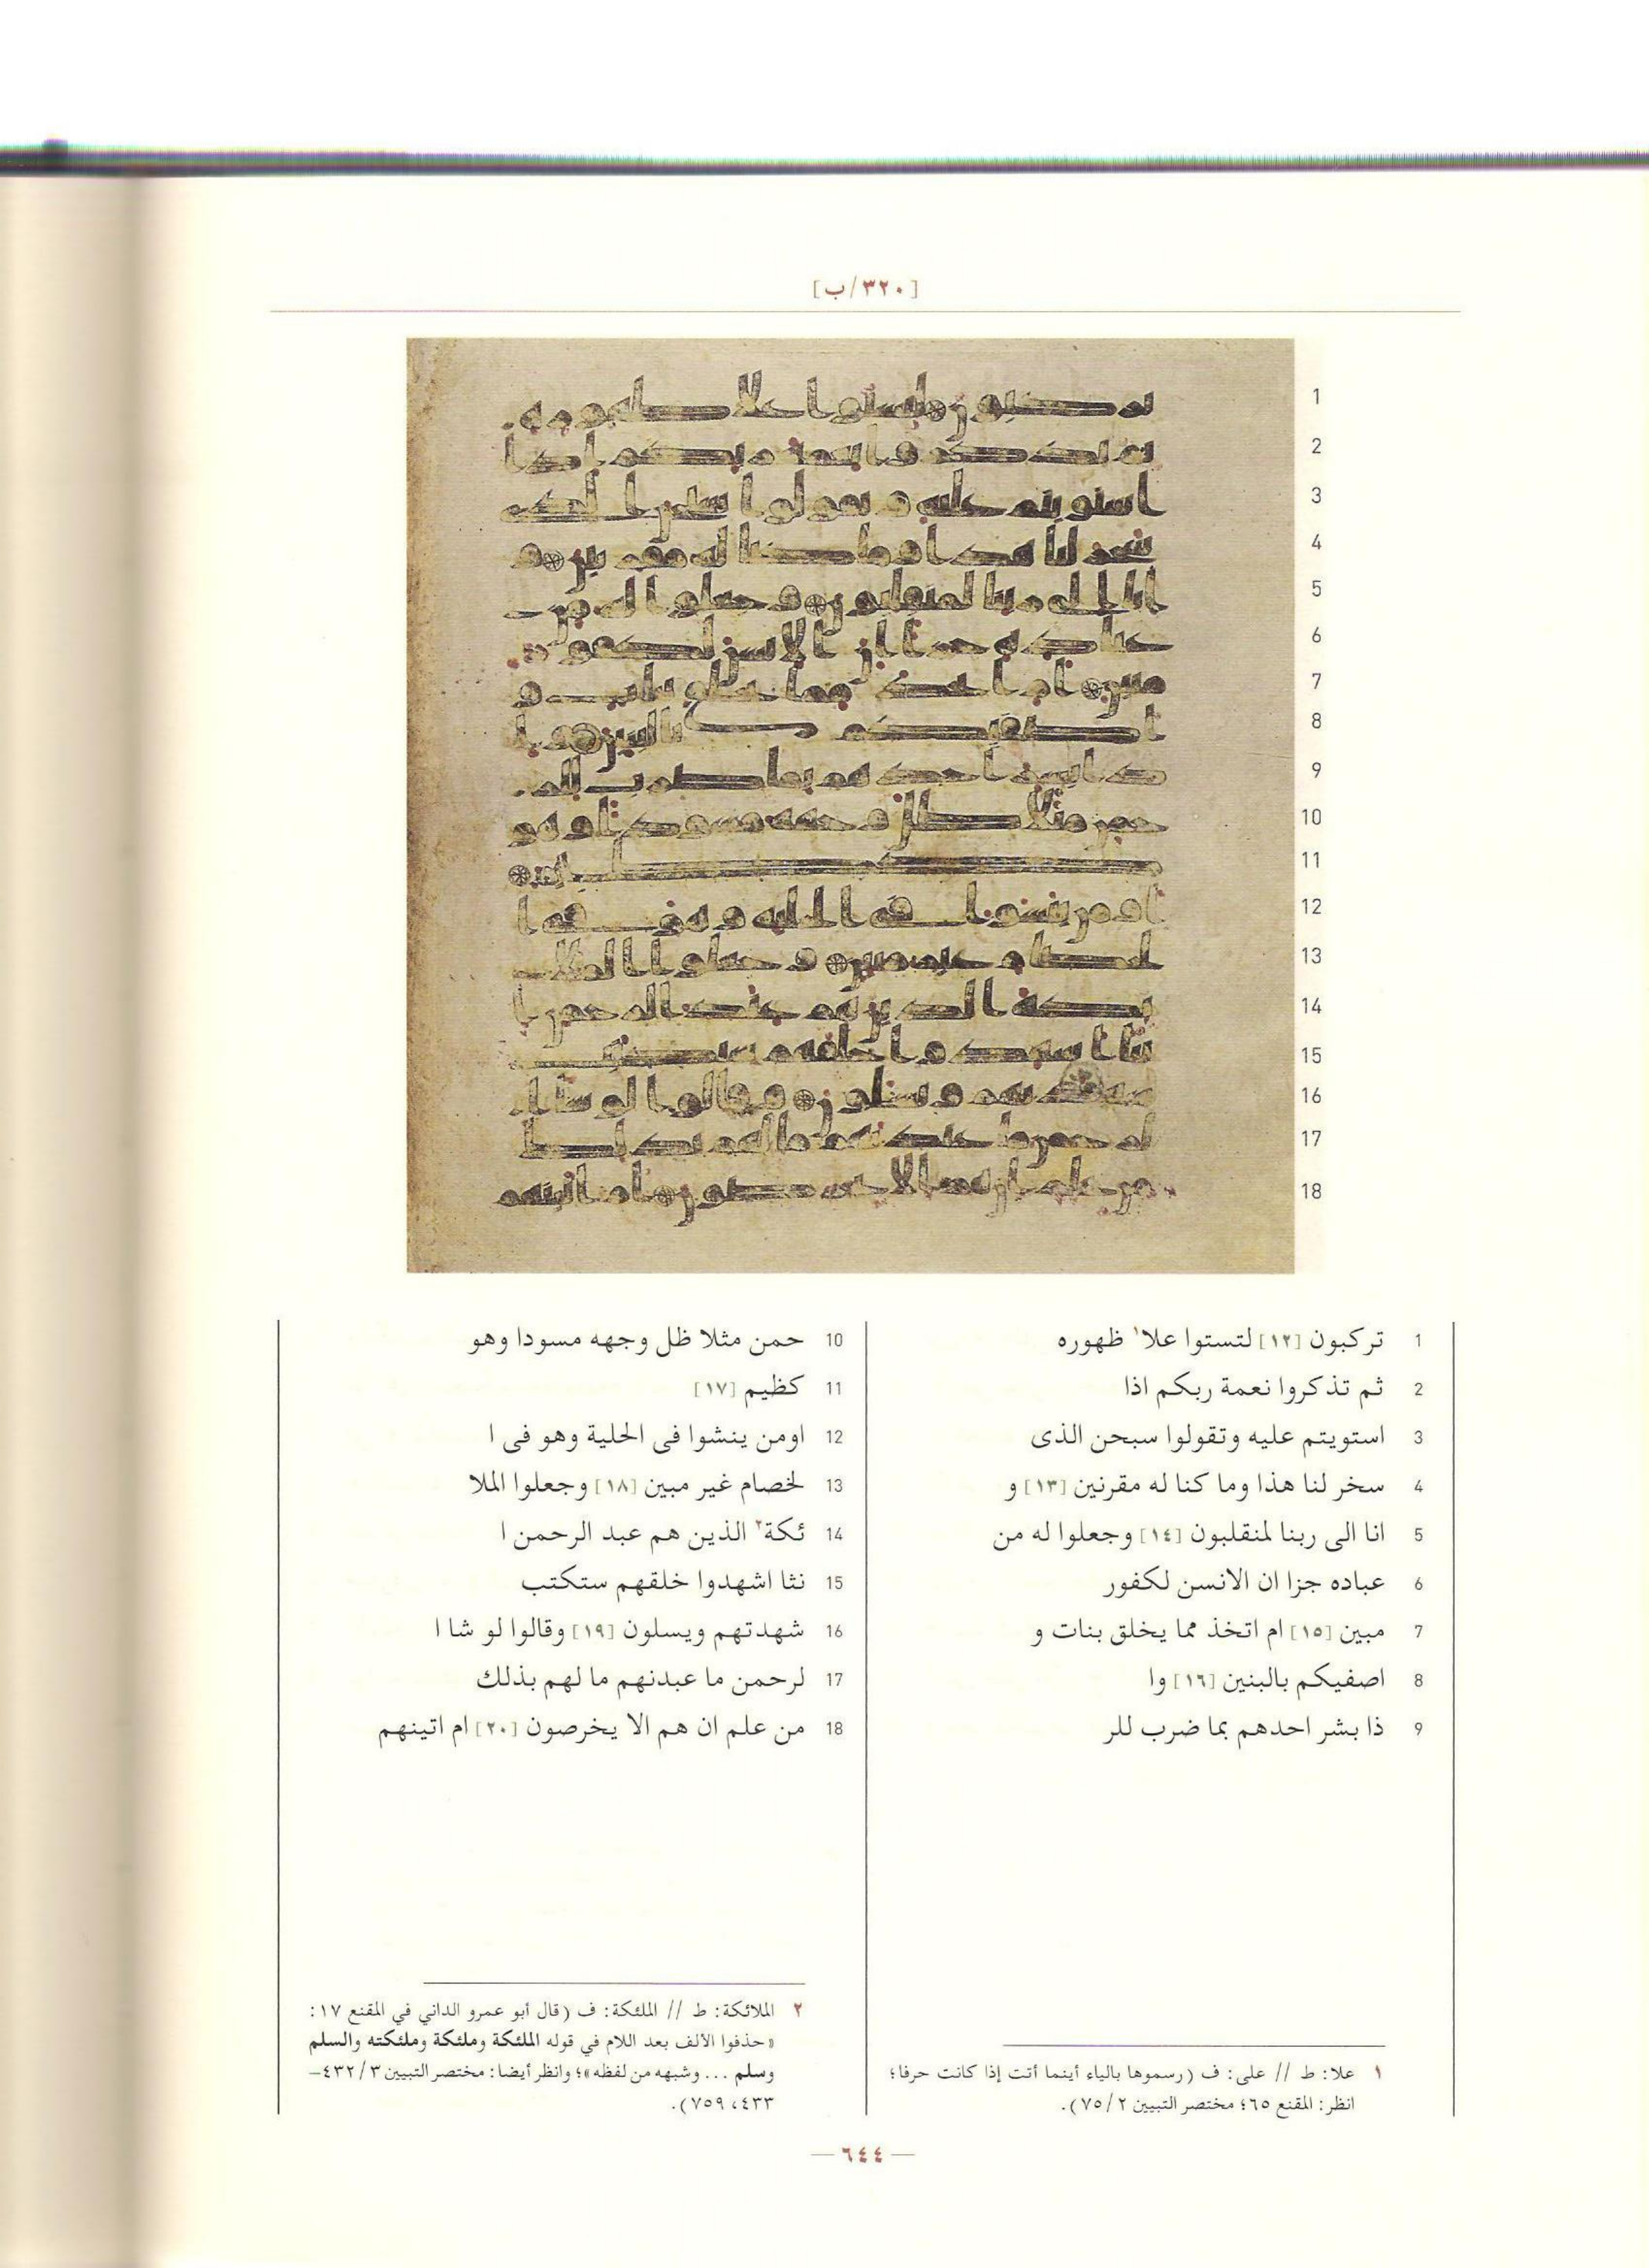 [٣٢٠/ب]
1
2
3
4
5
6
7
8
9
10
11
12
13
14
15
16
17
18
1 تركبون [١٢] لتستوا علا١ ظهوره
2 ثم تذكروا نعمة ربكم اذا
3 استويتم عليه وتقولوا سبحن الذى
4 سخر لنا هذا وما كنا له مقرنين [١٣] و
5 انا الى ربنا لمنقلبون [١٤] وجعلوا له من
6 عباده جزا ان الانسن لكفور
7 مبين [١٥] ام اتخذ مما يخلق بنات و
8 اصفيكم بالبنين [١٦] وا
9 ذا بشر احدهم بما ضرب للر
10 حمن مثلا ظل وجهه مسودا وهو
11 كظيم [١٧]
12 اومن ينشوا فى الحلية وهو فى ا
13 لخصام غير مبين [١٨] وجعلوا الملا
14 ئكة٢ الذين هم عبد الرحمن ا
15 نثا اشهدوا خلقهم ستكتب
16 شهدتهم ويسلون [١٩] وقالوا لو شا ا
17 لرحمن ما عبدنهم ما لهم بذلك
18 من علم ان هم الا يخرصون [٢٠] ام اتينهم
١ علا: ط // على: ف (رسموها بالياء أينما أتت إذا كانت حرفا؛
انظر: المقنع ٦٥؛ مختصر التبيين ٧٥/٢).
٢ الملائكة: ط // الملئكة: ف (قال أبو عمرو الداني في المقنع ١٧:
«حذفوا الألف بعد اللام في قوله الملئكة وملئكة وملئكته والسلم
وسلم ... وشبهه من لفظه»؛ وانظر أيضا: مختصر التبيين ٤٣٢/٣–
٤٣٣، ٧٥٩).
— ٦٤٤ —